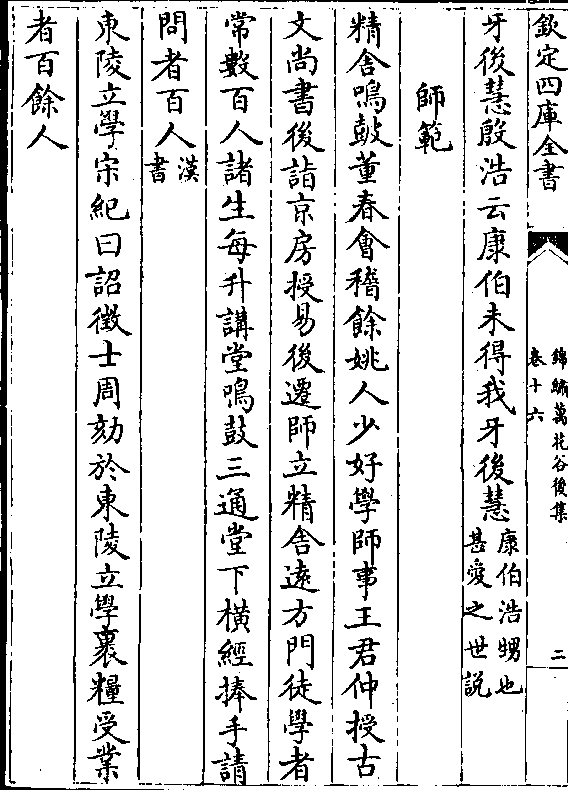 欽定四庫全書
錦繡萬花谷後集
卷十六
二
牙後慧殷浩云康伯未得我牙後慧康伯浩甥也
甚愛之世説
師範
精舎鳴鼓董春會稽餘姚人少好學師事王君仲授古
文尚書後詣京房授易後遷師立精舎逺方門徒學者
常數百人諸生毎升講堂鳴鼓三通堂下横經捧手請
問者百人漢
書
東陵立學宋紀曰詔徴士周勍於東陵立學裹糧受業
者百餘人